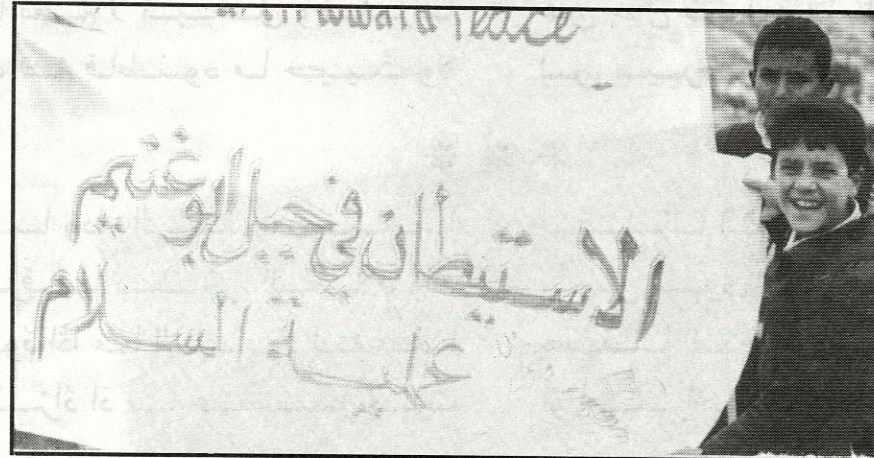 toward Peace
الاستيطان في جبل ابو غنيم
عملية السلام